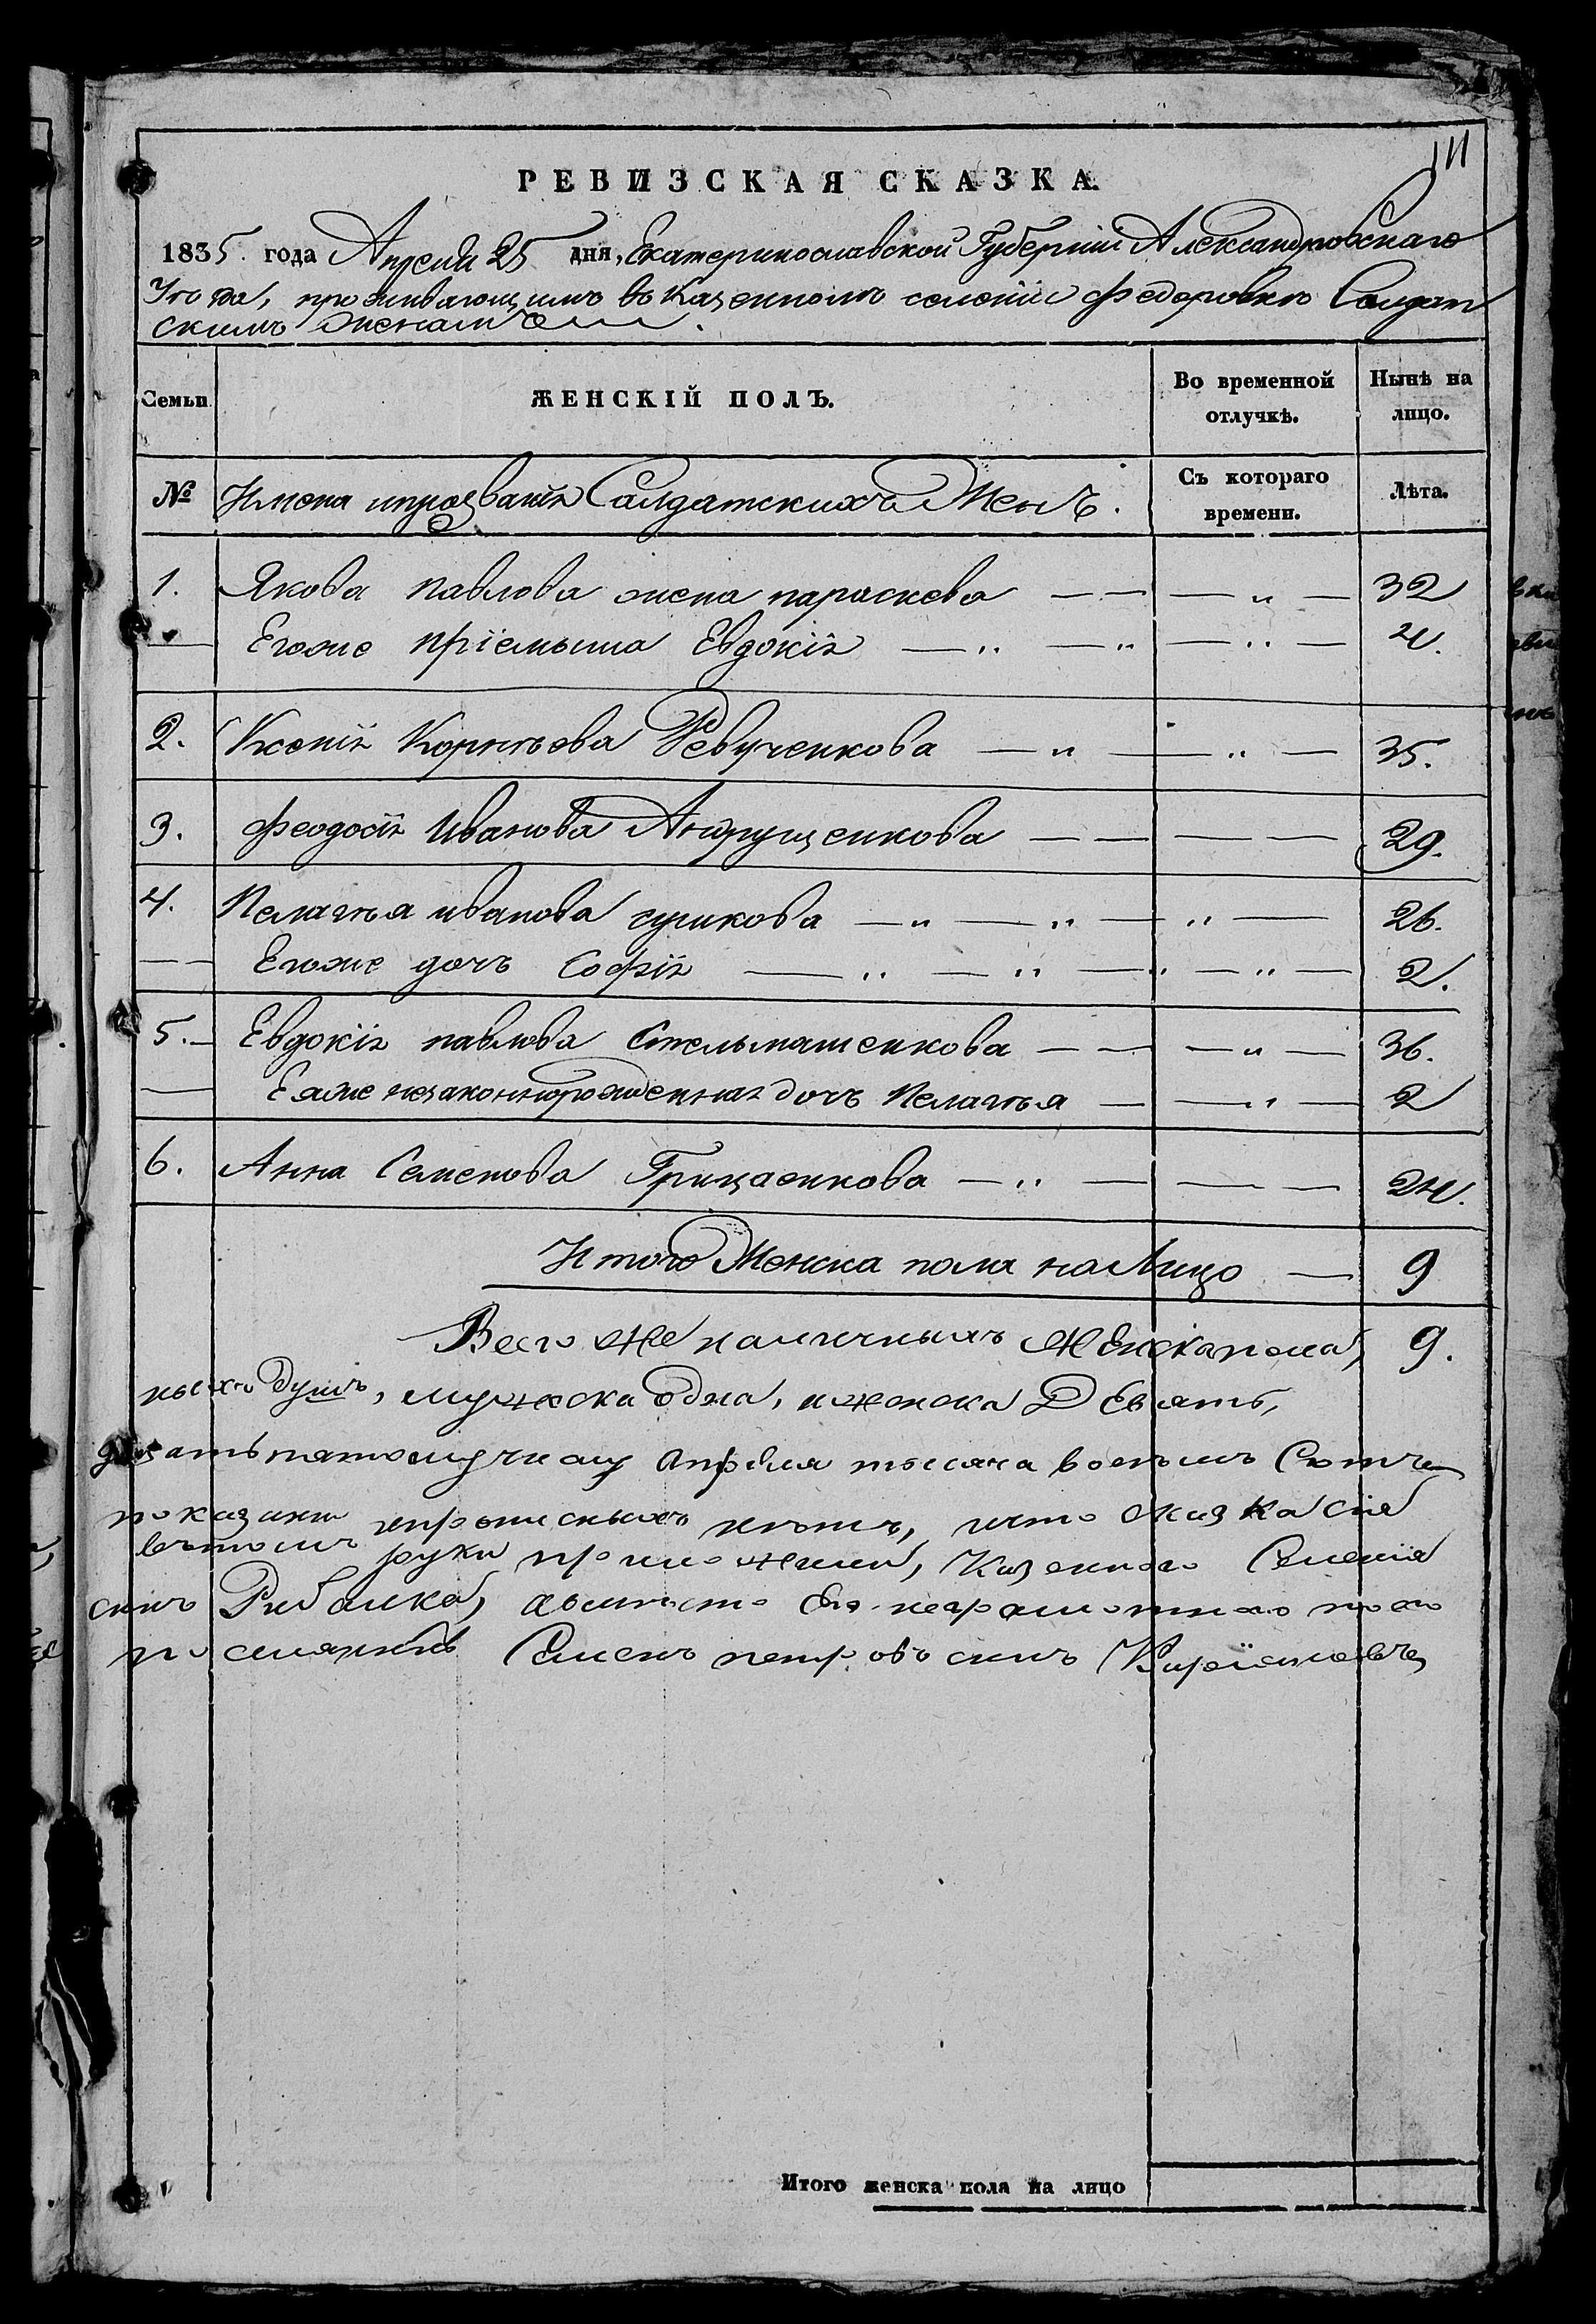 111
РЕВИЗСКАЯ СКАЗКА.
1835. года Апреля 25 дня, Екатеринославской Губернии Александровскаго
Уезда, проживающимъ въ Казенномъ селеніи Федоровке Салдат
скимъ женамъ
Семьи
ЖЕНСКІЙ ПОЛЪ.
Во временной отлучкѣ.
Нынѣ на лицо.
№ Имена ипрозванія Салдатскихъ Женъ.
Съ котораго времени.
Лѣта.
1. Якова павлова жена параскева — — — „ — 32
Егоже пріемыша Евдокія — „ — „ — „ — 4.
2. Ксенія Корнѣева Ревученкова — „ — „ — 35.
3. Феодосія Иванова Андрущенкова — — — — 29.
4. Пелагѣя иванова — „ — „ — „ — 26.
Егоже дочь Софія — „ — „ — „ — „ — 2.
5. Евдокія павлова Стельмашенкова — — — „ — 36.
Еяже незаконнорожденная дочь Пелагѣя — — „ — 2
6. Анна Семенова Грицаенкова — „ — — — 24.
Итого Женска пола наЛицо — 9
Всего же наличныхъ женска пола, 9.
ныхъ душъ, мужеска одна, иженска Девять,
дцать пятомучислу апреля тысяча восемъ Сотъ
показаны прописныхъ нѣтъ, что сказка сия
вътомъ руки приложили, Казенного Селения
синъ Рибалка, авместо его неграмотного по его
поселянинъ Семенъ петровъ синъ
Итого женска пола на лицо